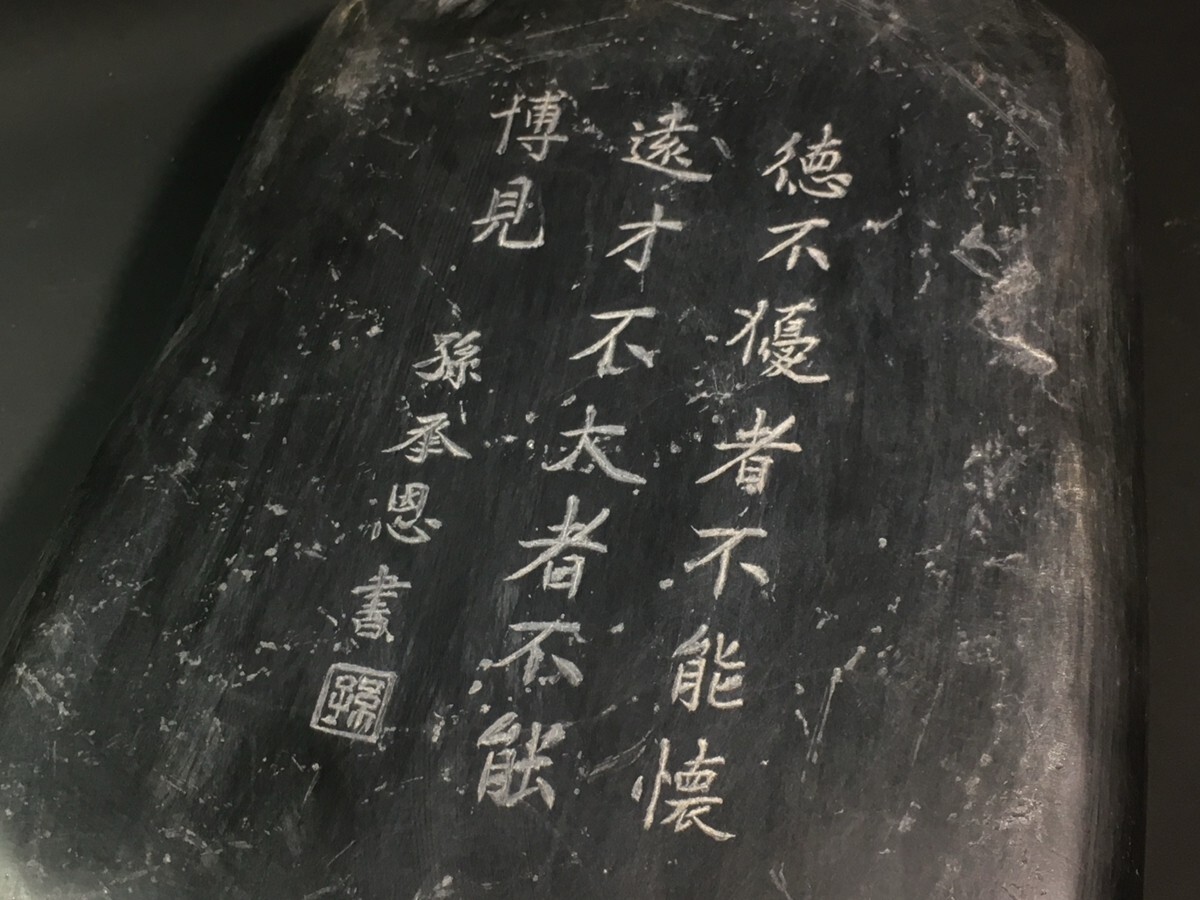 德不獶者不能懐
遠才不大者不能
博見
孫丞恩書
孫